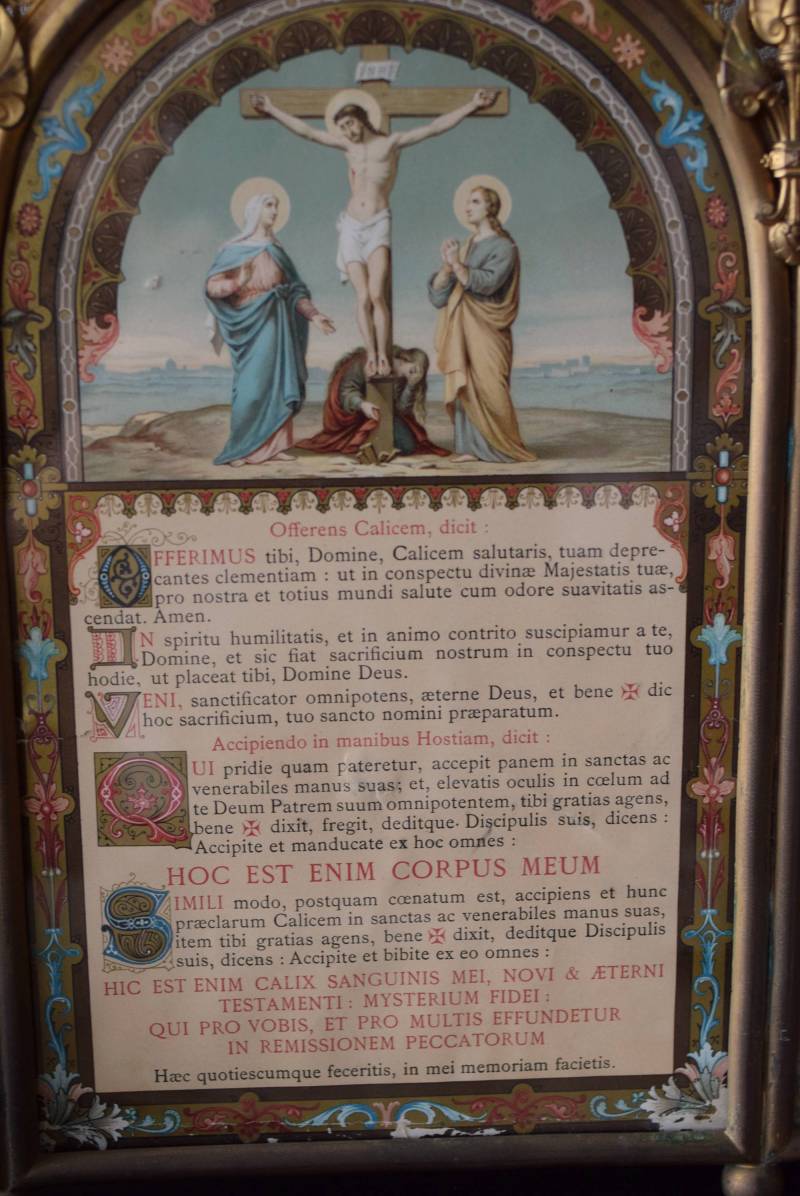 INRI
Offerens Calicem, dicit :
OFFERIMUS tibi, Domine, Calicem salutaris, tuam depre-
cantes clementiam : ut in conspectu divinæ Majestatis tuæ,
pro nostra et totius mundi salute cum odore suavitatis as-
cendat. Amen.
IN spiritu humilitatis, et in animo contrito suscipiamur a te,
Domine, et sic fiat sacrificium nostrum in conspectu tuo
hodie, ut placeat tibi, Domine Deus.
VENI, sanctificator omnipotens, æterne Deus, et bene ✠ dic
hoc sacrificium, tuo sancto nomini præparatum.
Accipiendo in manibus Hostiam, dicit :
QUI pridie quam pateretur, accepit panem in sanctas ac
venerabiles manus suas; et, elevatis oculis in cœlum ad
te Deum Patrem suum omnipotentem, tibi gratias agens,
bene ✠ dixit, fregit, deditque Discipulis suis, dicens :
Accipite et manducate ex hoc omnes :
HOC EST ENIM CORPUS MEUM
SIMILI modo, postquam cœnatum est, accipiens et hunc
præclarum Calicem in sanctas ac venerabiles manus suas,
item tibi gratias agens, bene ✠ dixit, deditque Discipulis
suis, dicens : Accipite et bibite ex eo omnes :
HIC EST ENIM CALIX SANGUINIS MEI, NOVI & ÆTERNI
TESTAMENTI : MYSTERIUM FIDEI :
QUI PRO VOBIS, ET PRO MULTIS EFFUNDETUR
IN REMISSIONEM PECCATORUM
Hæc quotiescumque feceritis, in mei memoriam facietis.